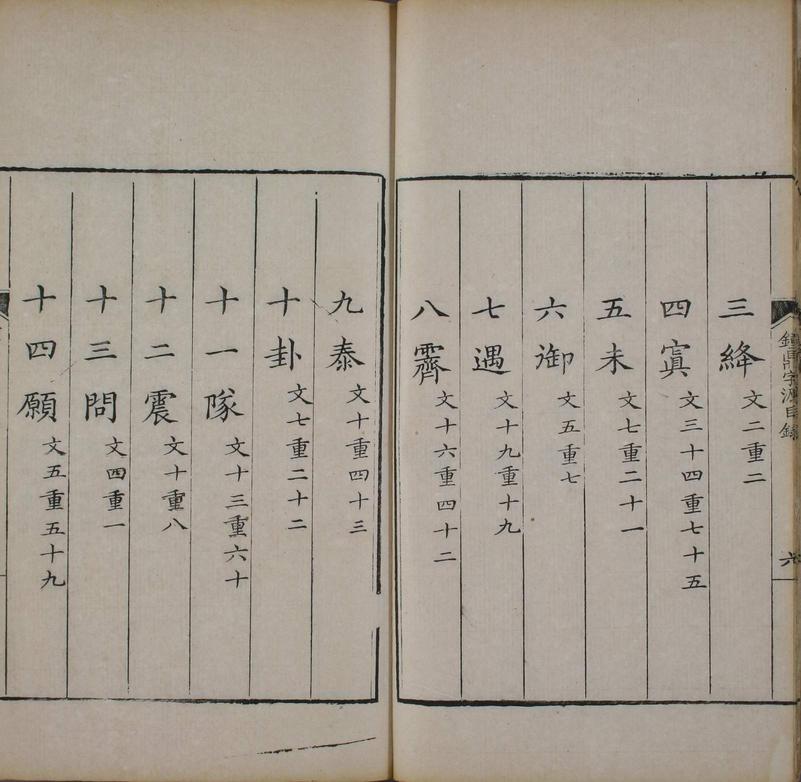 三絳文二重二
四寘文三十四重七十五
五未文七重二十一
六御文五重七
七遇文十九重十九
八霽文十六重四十二
九泰文十重四十三
十卦文七重二十二
十一隊文十三重六十
十二震文十重八
十三問文四重一
十四願文五重五十九
字源目錄
六